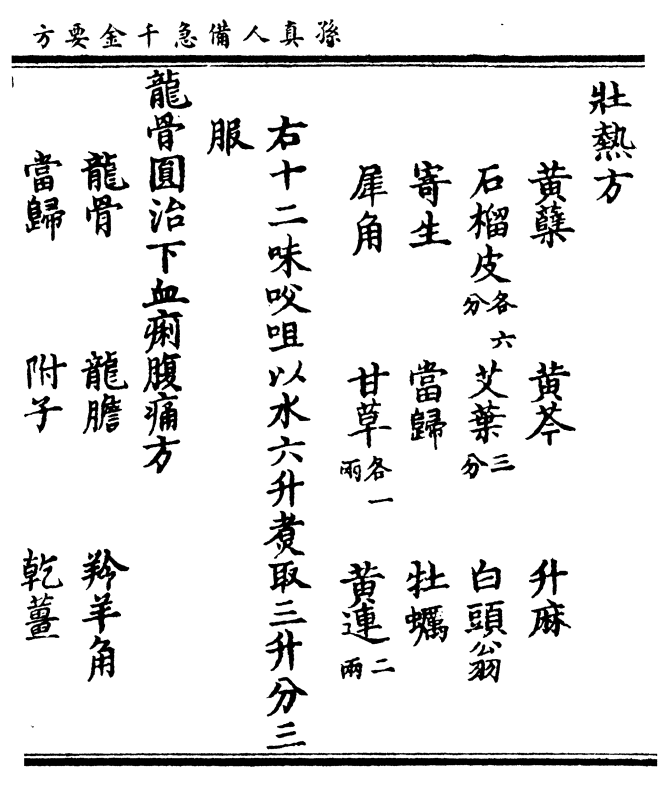 孫真人備急千金要方
壯熱方
黃蘗 黃芩 升麻
石榴皮各六分 艾葉三分 白頭翁
寄生 當歸 牡蠣
犀角 甘草各一兩 黃連二兩
右十二味㕮咀以水六升煑取三升分三
服
龍骨圓治下血痢腹痛方
龍骨 龍膽 羚羊角
當歸 附子 乾薑